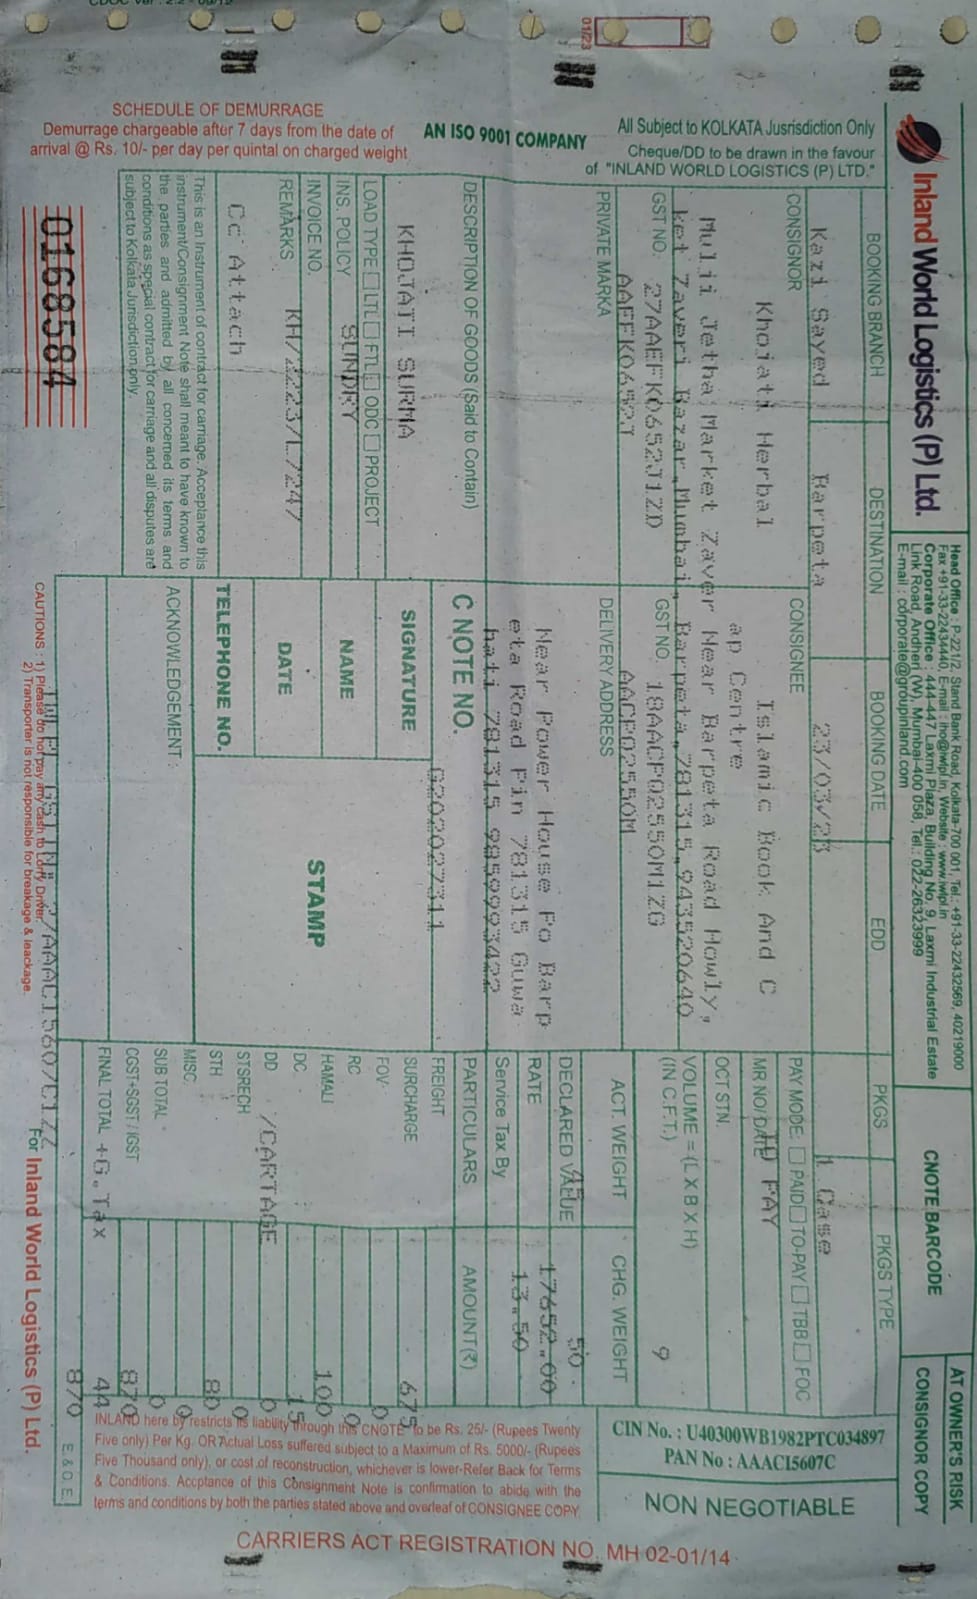 CDOC Ver : 2.2 - 09/19
01/23
SCHEDULE OF DEMURRAGE
Demurrage chargeable after 7 days from the date of
arrival @ Rs. 10/- per day per quintal on charged weight
AN ISO 9001 COMPANY
All Subject to KOLKATA Jusrisdiction Only
Cheque/DD to be drawn in the favour
of "INLAND WORLD LOGISTICS (P) LTD."
Inland World Logistics (P) Ltd.
Head Office : P-221/2, Stand Bank Road, Kolkata-700 001, Tel.: +91-33-22432569, 40219000
Fax +91-33-22434440, E-mail : iho@iwlpl.in, Website : www.iwlpl.in
Corporate Office : 444-447 Laxmi Plaza, Building No. 9, Laxmi Industrial Estate
Link Road, Andheri (W), Mumbai-400 058, Tel.: 022-26323999
E-mail : corporate@groupinland.com
CNOTE BARCODE
AT OWNER'S RISK
CONSIGNOR COPY
BOOKING BRANCH
DESTINATION
BOOKING DATE
EDD
PKGS
PKGS TYPE
Kazi Sayed
Barpeta
23/03/23
1 Case
CONSIGNOR
Khojati Herbal
Mulji Jetha Market Zaver
ket Zaveri Bazar,Mumbai,
GST NO. 27AAEFK0652J1ZD
AAEFK0652J
CONSIGNEE
Islamic Book And C
ap Centre
Near Barpeta Road Howly,
Barpeta,781315,9435520640
GST NO. 18AACFO2550M1ZG
AACFO2550M
PAY MODE: PAID TO-PAY TBB FOC
MR NO/DATE TO PAY
OCT STN.
VOLUME = (L X B X H)
(IN C.F.T.)
9
CIN No. : U40300WB1982PTC034897
PAN No : AAACI5607C
NON NEGOTIABLE
PRIVATE MARKA
DELIVERY ADDRESS
Near Power House Po Barp
eta Road Pin 781315 Guwa
hati 781315 9859993422
ACT. WEIGHT
CHG. WEIGHT
45
50
DECLARED VALUE 17652.00
RATE 13.50
Service Tax By
DESCRIPTION OF GOODS (Said to Contain)
KHOJATI SURMA
LOAD TYPE LTL FTL ODC PROJECT
INS. POLICY SUNDRY
INVOICE NO. KH/2223/L7247
REMARKS
Cc Attach
C NOTE NO. G202027311
SIGNATURE
NAME
DATE
TELEPHONE NO.
STAMP
ACKNOWLEDGEMENT :
PARTICULARS AMOUNT(₹)
FREIGHT 675
SURCHARGE 0
FOV 0
RC 0
HAMALI 100
DC 15
DD /CARTAGE 0
STSRECH 0
STH 80
MISC. 0
SUB TOTAL 0
CGST+SGST / IGST 870
FINAL TOTAL +G.Tax 44
870
E. & O. E.
This is an Instrument of contract for carriage. Acceptance this
instrument/Consignment Note shall meant to have known to
the parties and admitted by all concerned its terms and
conditions as special contract for carriage and all disputes are
subject to Kolkata Jurisdiction only.
0168584
INLAND here by restricts its liability through this CNOTE to be Rs. 25/- (Rupees Twenty
Five only) Per Kg. OR Actual Loss suffered subject to a Maximum of Rs. 5000/- (Rupees
Five Thousand only), or cost of reconstruction, whichever is lower-Refer Back for Terms
& Conditions. Accptance of this Consignment Note is confirmation to abide with the
terms and conditions by both the parties stated above and overleaf of CONSIGNEE COPY.
IWLPL GSTIN: 27AAACI5607C1ZZ
CAUTIONS : 1) Please do not pay any cash to Lorry Driver.
2) Transporter is not responsible for breakage & leackage.
For Inland World Logistics (P) Ltd.
CARRIERS ACT REGISTRATION NO. MH 02-01/14